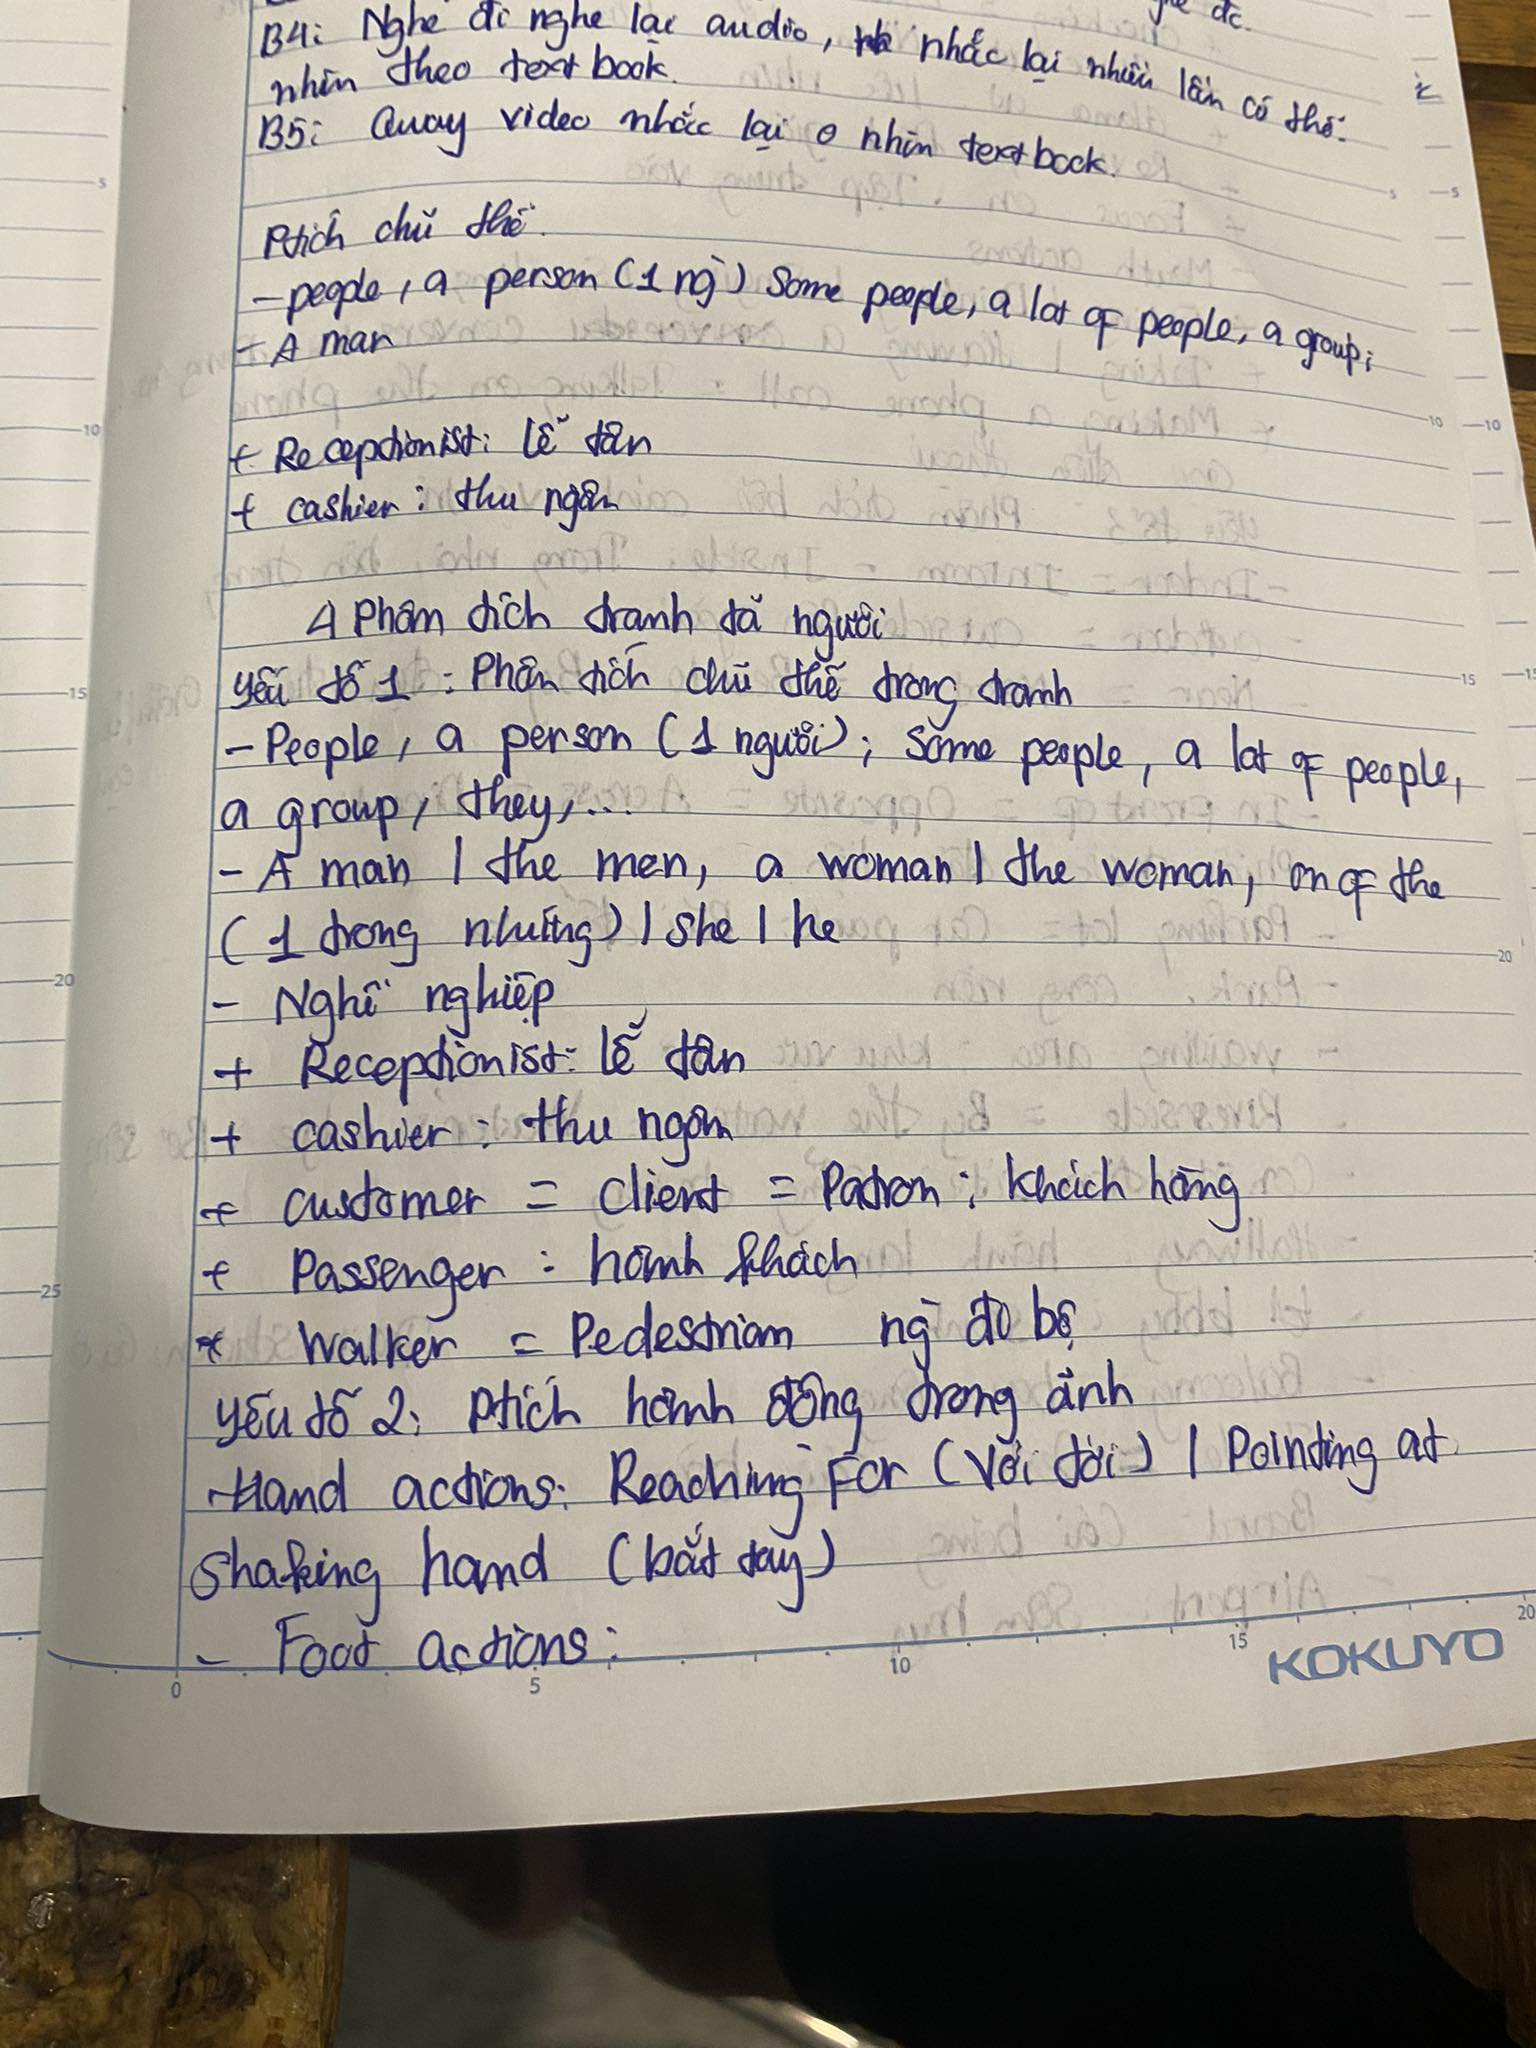 B4: Nghe đi nghe lại audio, nhắc lại nhiều lần có thể.
nhìn theo text book.
B5: Quay video nhắc lại 0 nhìn text book.
Ptích chủ thể.
- people, a person (1 ng) Some people, a lot of people, a group;
- A man
+ Receptionist: lễ tân
+ cashier: thu ngân
△ Phân tích tranh tả người
yếu tố 1: Phân tích chủ thể trong tranh
- People, a person (1 người); some people, a lot of people,
a group, they,...
- A man | the men, a woman | the woman, on of the
(1 trong những) | she | he
- Nghề nghiệp
+ Receptionist: lễ tân
+ cashier: thu ngân
+ customer = client = Patron: khách hàng
+ Passenger: hành khách
* Walker = Pedestrian ng đi bộ
yếu tố 2: Ptích hành động trong ảnh
- Hand actions: Reaching For (với tới) | Pointing at
shaking hand (bắt tay)
- Foot actions:
5 5 5
10 10 10
15 15
20 20
25
0 5 10 15 20
KOKUYO